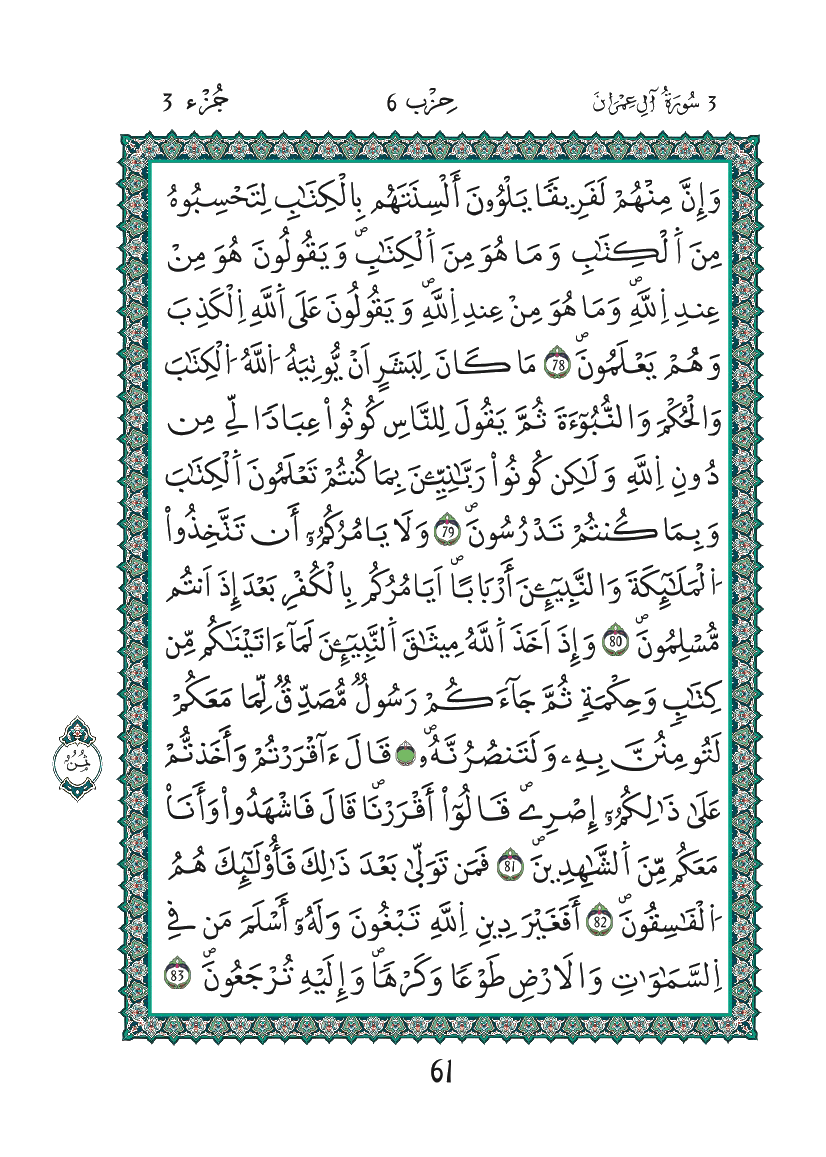 3 سُورَةُ آلِ عِمْرَانَ
حِزْب 6
جُزْء 3
وَإِنَّ مِنْهُمْ لَفَرِيقًا يَلْوُۥنَ أَلْسِنَتَهُم بِالْكِتَٰبِ لِتَحْسِبُوهُ
مِنَ اَ۬لْكِتَٰبِ وَمَا هُوَ مِنَ اَ۬لْكِتَٰبِۖ وَيَقُولُونَ هُوَ مِنْ
عِندِ اِ۬للَّهِۖ وَمَا هُوَ مِنْ عِندِ اِ۬للَّهِۖ وَيَقُولُونَ عَلَى اَ۬للَّهِ اِ۬لْكَذِبَ
وَهُمْ يَعْلَمُونَۖ 78 مَا كَانَ لِبَشَرٍ اَنْ يُّوتِيَهُ اُ۬للَّهُ اُ۬لْكِتَٰبَ
وَالْحُكْمَ وَالنُّبُوٓءَةَ ثُمَّ يَقُولَ لِلنَّاسِ كُونُواْ عِبَادًا لِّے مِن
دُونِ اِ۬للَّهِ وَلَٰكِن كُونُواْ رَبَّٰنِيِّۦنَ بِمَا كُنتُمْ تَعْلَمُونَ اَ۬لْكِتَٰبَ
وَبِمَا كُنتُمْ تَدْرُسُونَۖ 79 وَلَا يَامُرُكُمُۥٓ أَن تَتَّخِذُواْ
اُ۬لْمَلَٰٓئِكَةَ وَالنَّبِيٓـِٕۧنَ أَرْبَاباًۖ اَيَامُرُكُم بِالْكُفْرِ بَعْدَ إِذَ اَنتُم
مُّسْلِمُونَۖ 80 وَإِذَ اَخَذَ اَ۬للَّهُ مِيثَٰقَ اَ۬لنَّبِيٓـِٕۧنَ لَمَآ ءَاتَيْنَٰكُم مِّن
كِتَٰبٍ وَحِكْمَةٍ ثُمَّ جَآءَكُمْ رَسُولٌ مُّصَدِّقٌ لِّمَا مَعَكُمْ
لَتُومِنُنَّ بِهِۦ وَلَتَنصُرُنَّهُۥۖ قَالَ ءَآقْرَرْتُمْ وَأَخَذتُّمْ
ثُمُن
عَلَىٰ ذَٰلِكُمُۥٓ إِصْرِےۖ قَالُوٓاْ أَقْرَرْنَاۖ قَالَ فَاشْهَدُواْ وَأَنَا۠
مَعَكُم مِّنَ اَ۬لشَّٰهِدِينَۖ 81 فَمَن تَوَلّ۪ىٰ بَعْدَ ذَٰلِكَ فَأُوْلَٰٓئِكَ هُمُ
اُ۬لْفَٰسِقُونَۖ 82 أَفَغَيْرَ دِينِ اِ۬للَّهِ تَبْغُونَ وَلَهُۥٓ أَسْلَمَ مَن فِے
اِ۬لسَّمَٰوَٰتِ وَالَارْضِ طَوْعًا وَكَرْهاًۖ وَإِلَيْهِ تُرْجَعُونَۖ 83
61